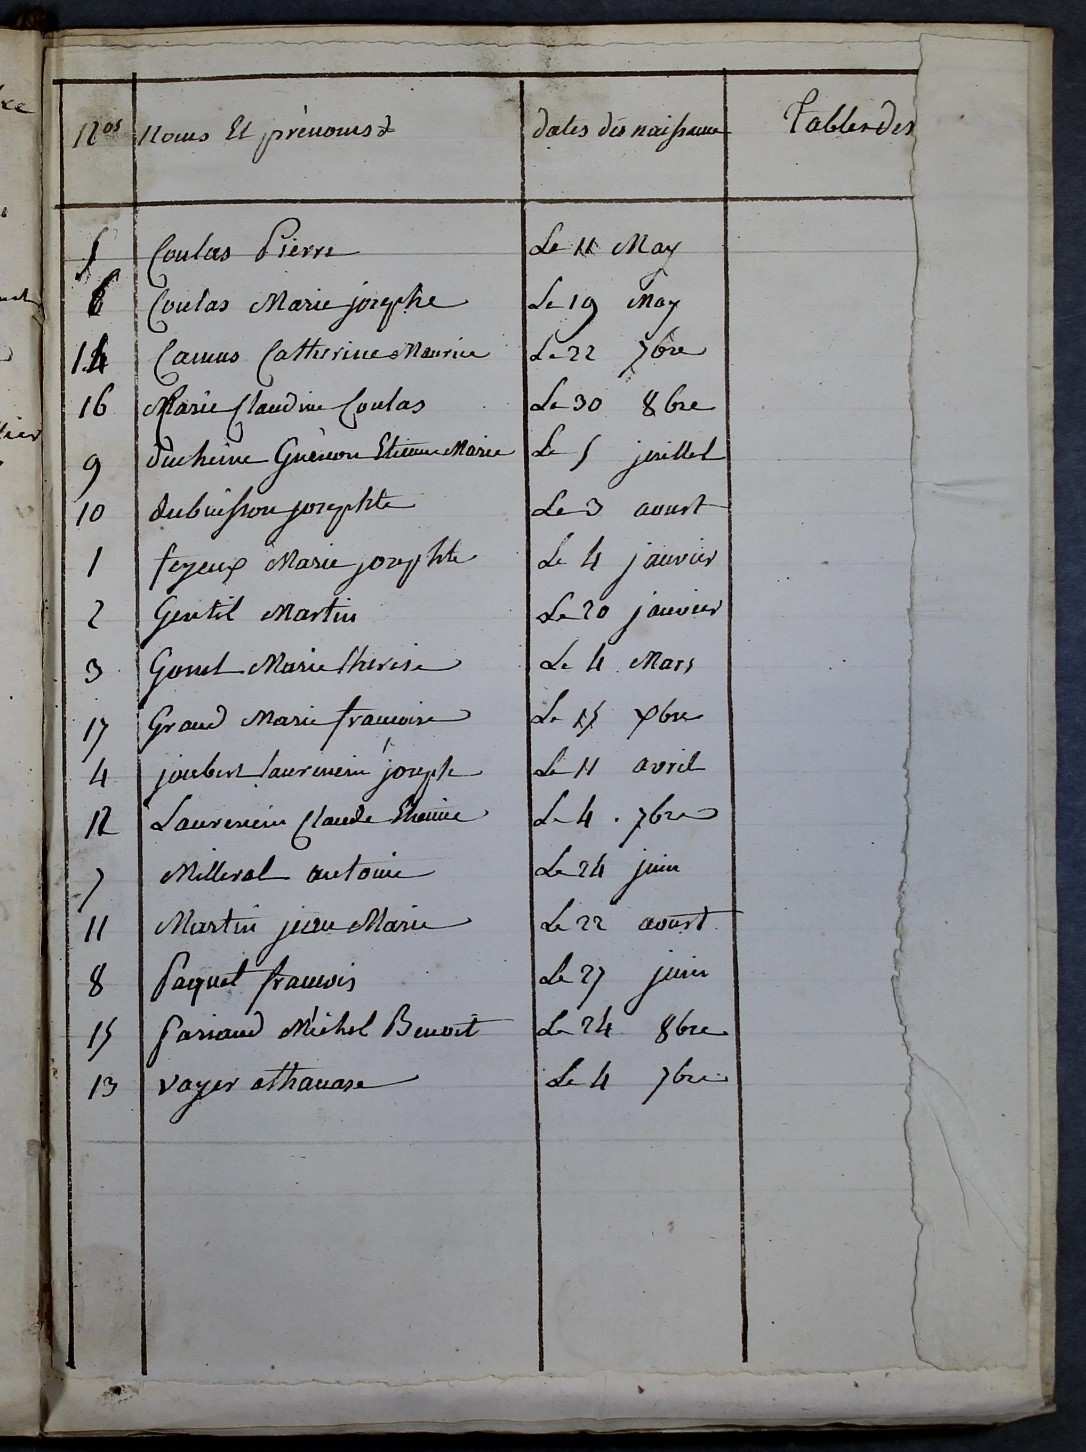 Nos Noms Et prénoms dates des naissance Tables des
5 Coulas Pierre Le 11 May
6 Coulas Marie josephe Le 19 May
14 Camus Catherine Maurice Le 22 7bre
16 Marie Claudine Coulas Le 30 8bre
9 ducheine Guenon Etienne Marie Le 5 juillet
10 dubuisson josephte Le 3 aoust
1 feyeux Marie josephte Le 4 janvier
2 Gentil Martin Le 20 janvier
3 Gonet Marie therese Le 4 Mars
17 Grand Marie francoise Le 15 xbre
4 joubert laurencin joseph Le 11 avril
12 Laurencin Claude Etienne Le 4 7bre
7 Milleral antoine Le 24 juin
11 Martin jean Marie Le 22 aoust
8 Paquet francois Le 27 juin
15 Pariaud Michel Benoit Le 24 8bre
13 Voyer athanase Le 4 7bre